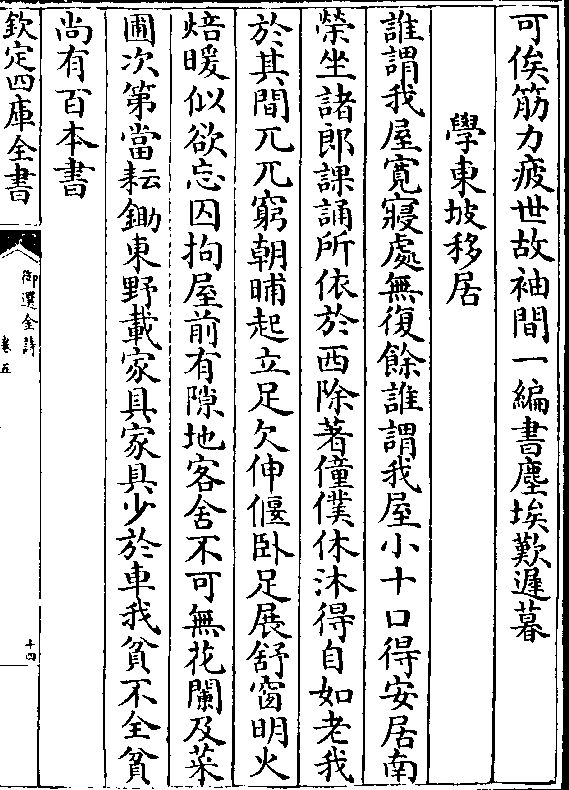 可俟筋力疲世故袖間一編書塵埃歎遲暮
學東坡移居
誰謂我屋寛寢處無復餘誰謂我屋小十口得安居南
榮坐諸郎課誦所依於西除著僮僕休沐得自如老我
於其間兀兀窮朝晡起立足欠伸偃卧足展舒窗明火
焙暖似欲忘囚拘屋前有隙地客舍不可無花闌及菜
圃次第當耘鋤東野載家具家具少於車我貧不全貧
尚有百本書
欽定四庫全書
御選金詩
卷五
十四